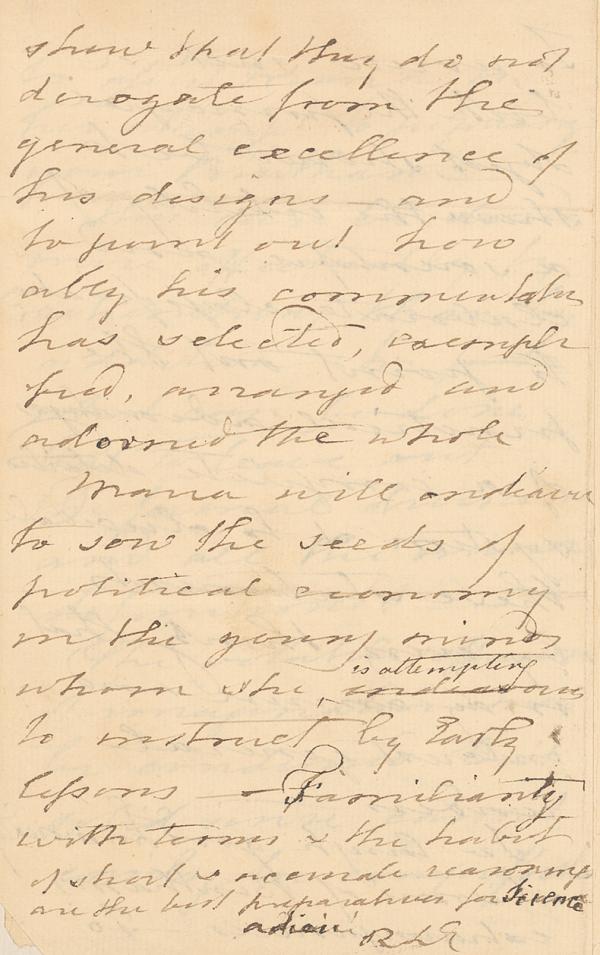 show that they do not
derogate from the
general excellence of
his designs – and
to point out how
ably his commentator
has selected, exempli
fied, arranged and
adorned the whole
Maria will endeavour
to sow the seeds of
political economy
in the young minds
is attempting
whom she, endeavours
to instruct by Early
lessons – Familiarity
with terms & the habit
of short & accurate reasoning
are the best preparatives for Science
adieu RLE